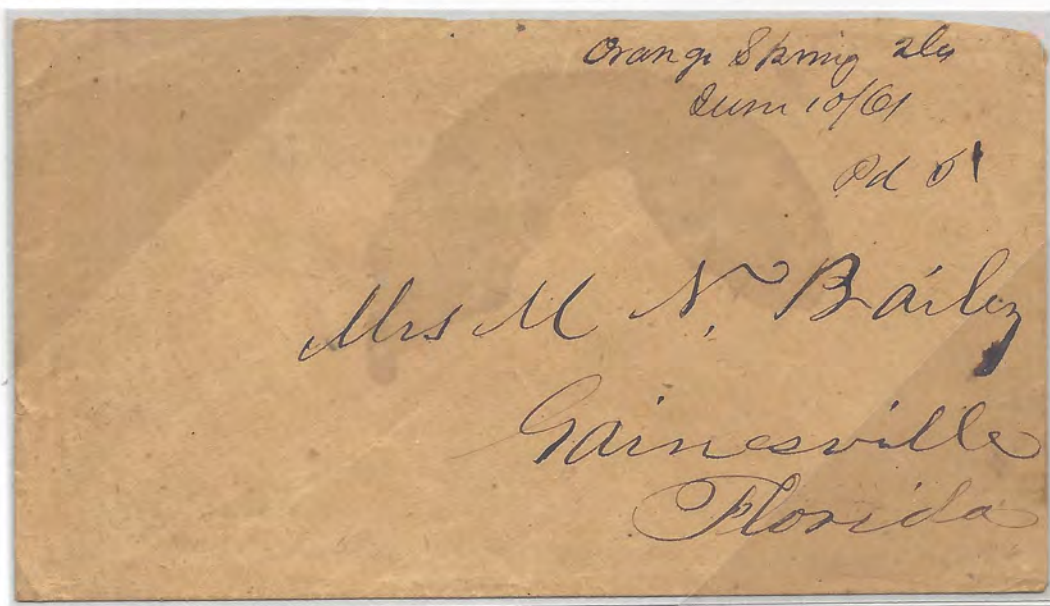 Orange Spring Fla
June 10/61
Pd 5
Mrs M N. Bailey
Gainesville
Florida